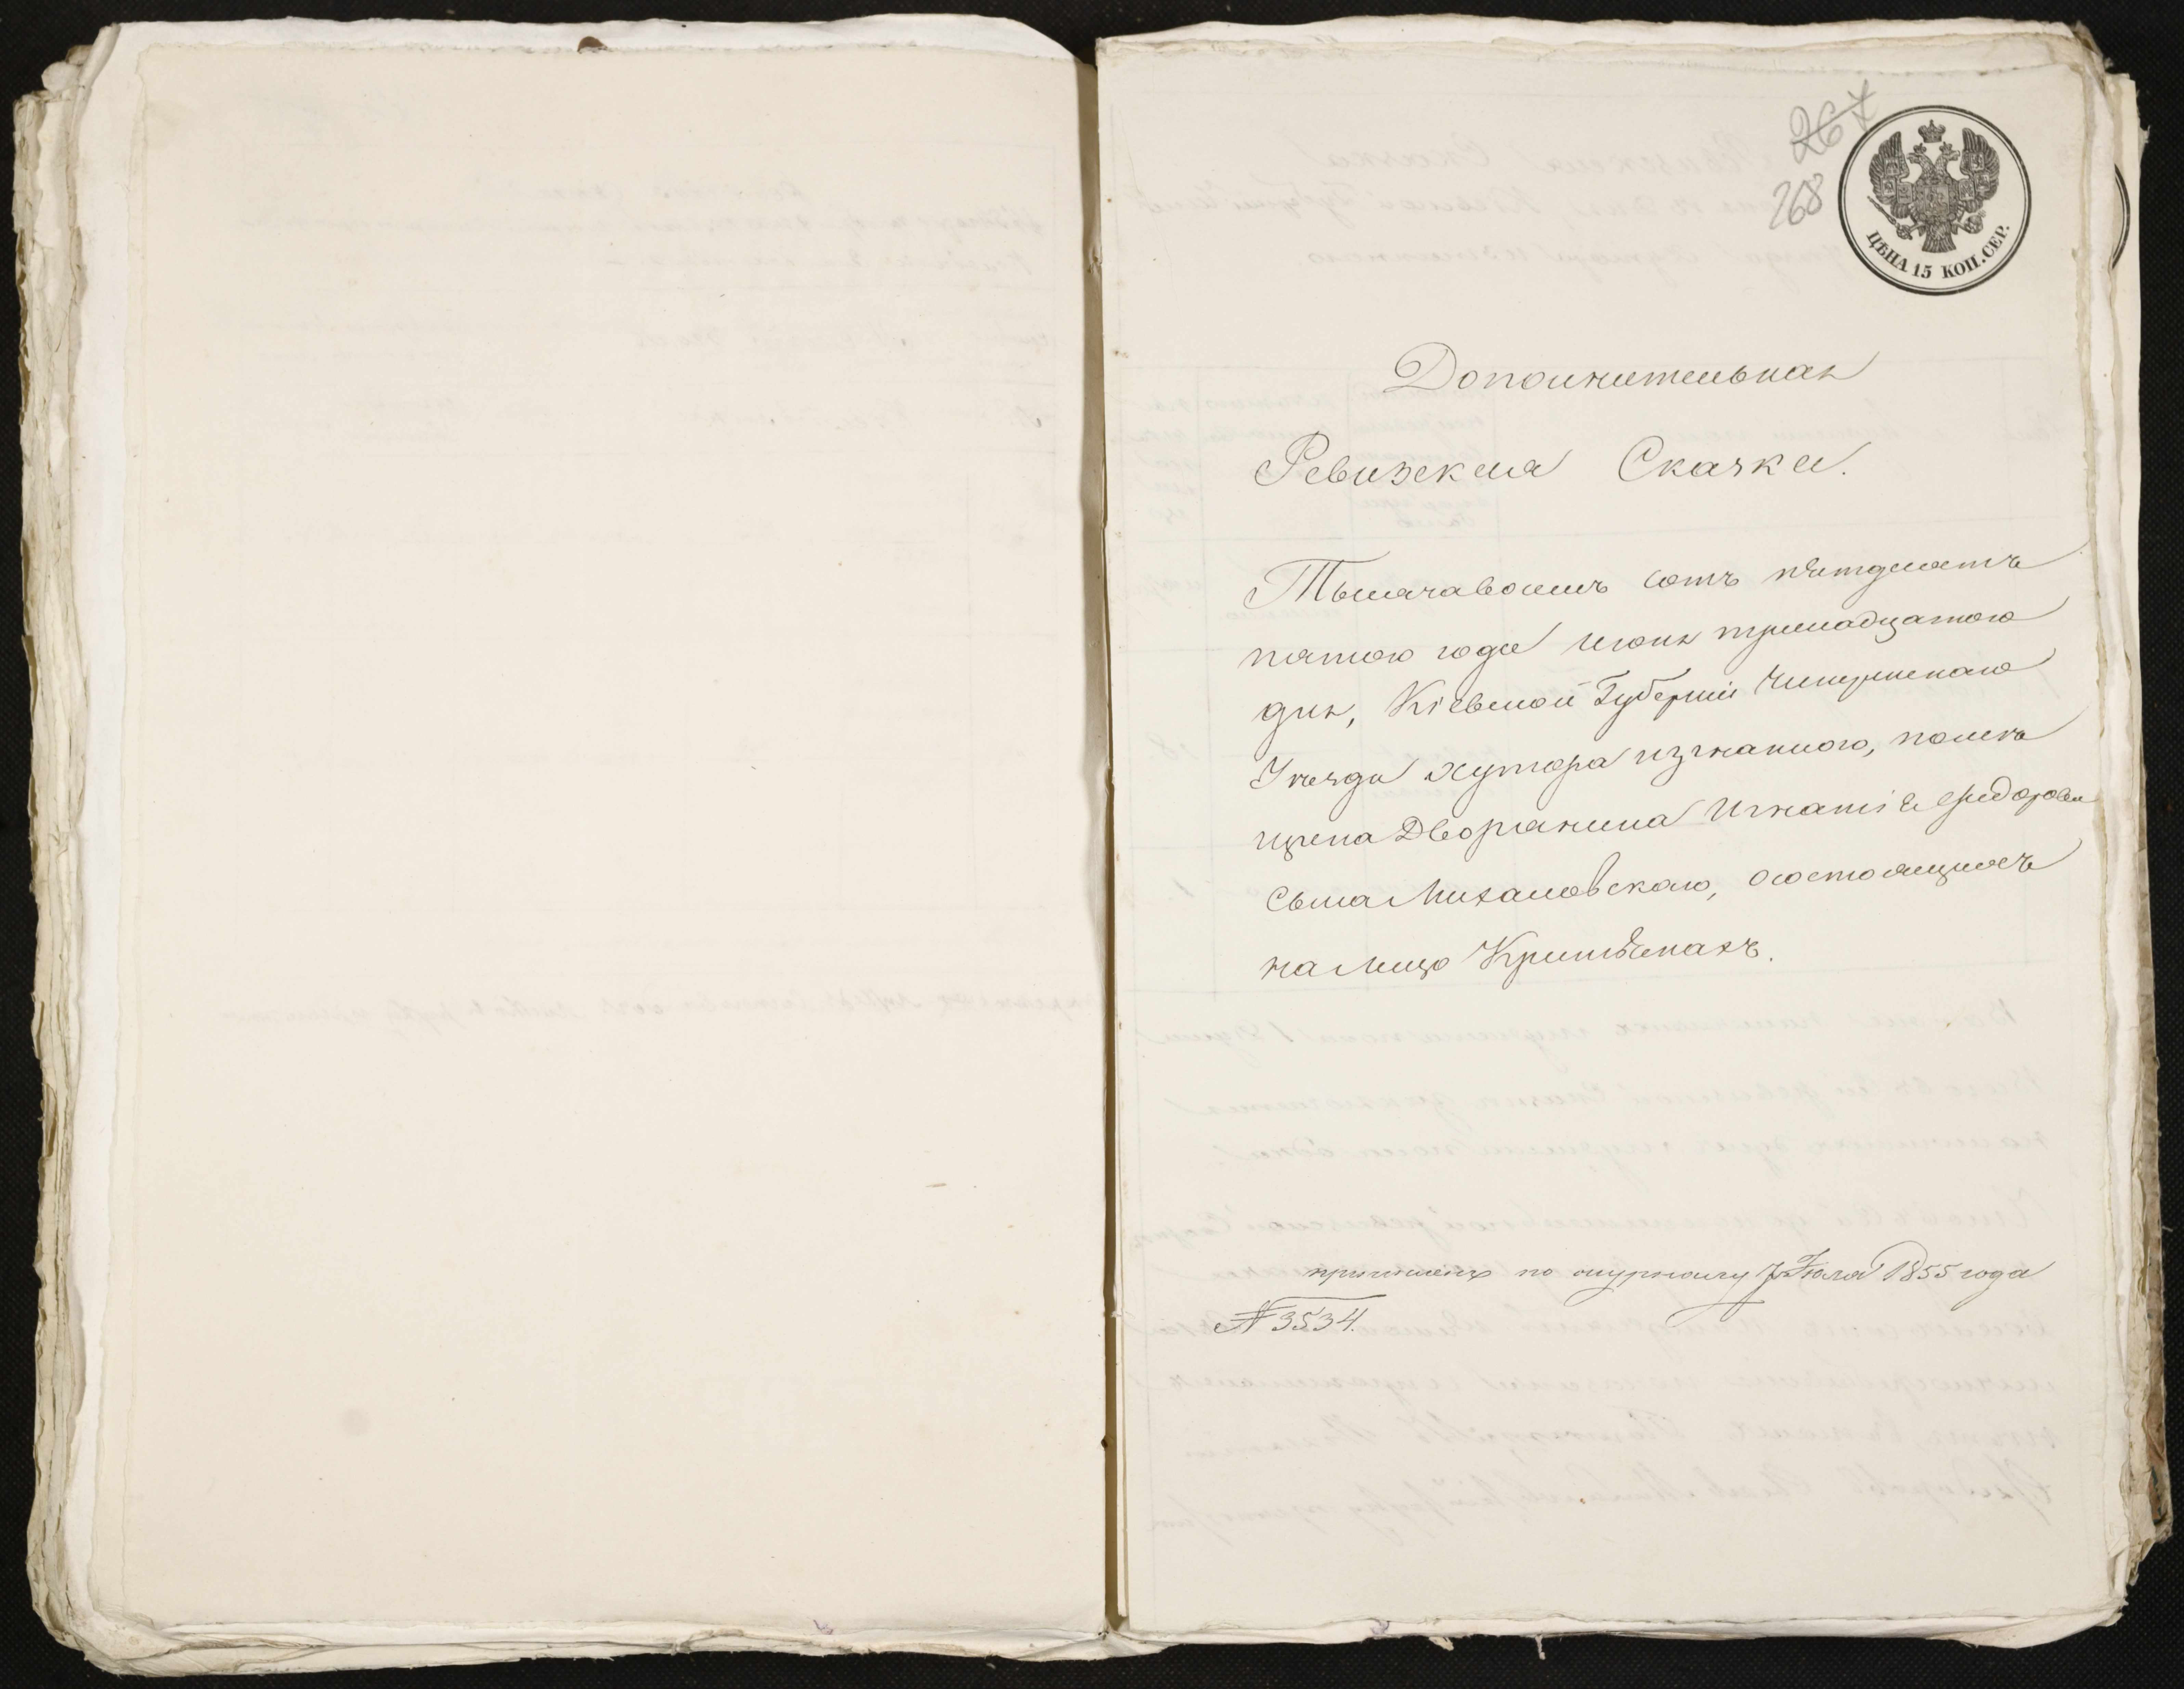 267
268
ЦѢНА 15 КОП. СЕР.
Дополнительная
Ревизская Сказка.
Тысяча восемь сотъ пятдесятъ
пятого года Июня тринадцатого
дня, Кіевской Губерніи Чигринскаго
Уѣзда хутора помѣ
щика Дворянина Игнатія Федорова
Сына Михаловскаго, о состоящихъ
на лицо Крестьянахъ.
по журналу 7 Іюля 1855 года
№ 3534.